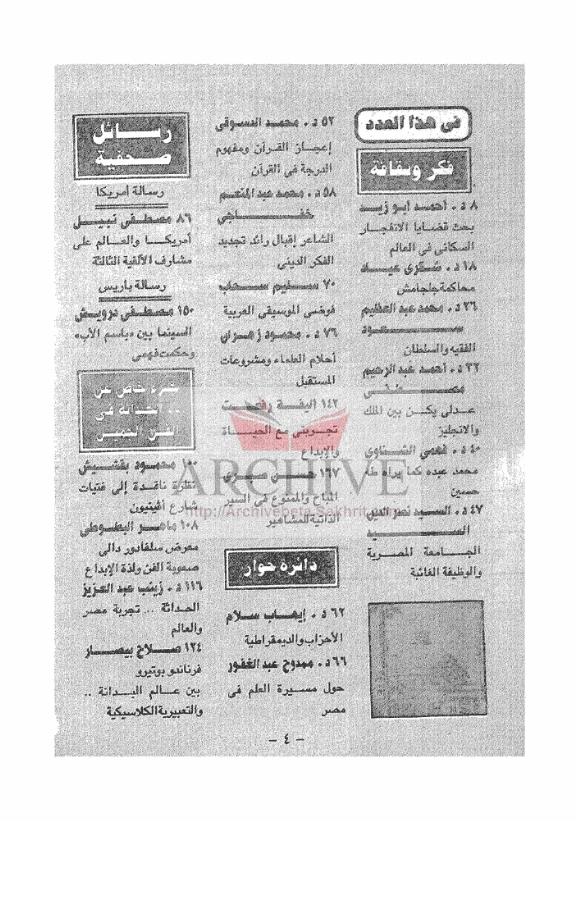 فى هذا العدد
فكر وثقافة
٨ د . أحمد أبو زيد
بحث قضايا الانفجار
السكانى فى العالم
١٨ د . شكرى عياد
محاكمة جلجامش
٢٦ د . محمد عبد العظيم
ســعود
الفقيه والسلطان
٣٢ د . أحمد عبد الرحيم
مصــطفى
عدلى يكن بين الملك
والانجليز
٤٠ د . فهمى الشناوى
محمد عبده كما يراه طه
حسين
٤٧ د . السيد نصر الدين
الســيد
الجامعة المصرية
والوظيفة الغائبة
٥٢ د . محمد الدسوقى
إعجاز القرآن ومفهوم
الدرجة فى القرآن
٥٨ د . محمد عبد المنعم
خفــاجى
الشاعر إقبال رائد تجديد
الفكر الدينى
٧٠ سليم سحاب
فوضى الموسيقى العربية
٧٦ د . محمود زهران
أحلام العلماء ومشروعات
المستقبل
١٤٢ اليفة رفعت
تجربتى مع الحياة
والإبداع
١٦٧
المباح والممنوع فى السير
الذاتية للمشاهير
دائرة حوار
٦٢ د . إيهاب سلام
الأحزاب والديمقراطية
٦٦ د . ممدوح عبد الغفور
حول مسيرة العلم فى
مصر
رسائل
صحفية
رسالة أمريكا
٨٦ مصطفى نبيل
أمريكا والعالم على
مشارف الألفية الثالثة
رسالة باريس
١٥٠ مصطفى درويش
السينما بين «باسم الأب»
وحكمت فهمى
جزء خاص عن
الحداثة فى
الفن
محمود بقشيش
نظرة ناقدة إلى فتيات
شارع أفينيون
١٠٨ ماهر البطوطى
معرض سلفادور دالى
صعوبة الفن ولذة الإبداع
١١٦ د . زينب عبد العزيز
الحداثة ... تجربة مصر
والعالم
١٢٤ صلاح بيصار
فرناندو بوتيرو
بين عالم البدانة ..
والتعبيرية الكلاسيكية
ARCHIVE
http://Archivebeta.Sakhrit.com
- ٤ -